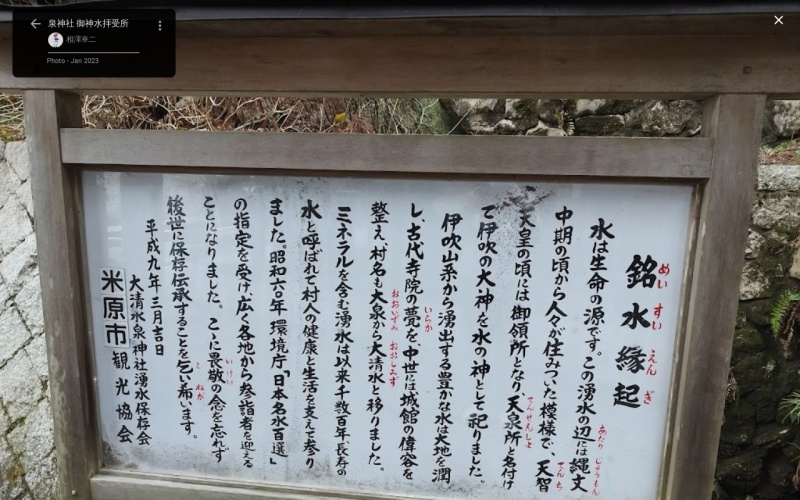 泉神社 御神水拝受所
相澤幸二
Photo - Jan 2023
銘水縁起
めい すい えん ぎ
水は生命の源です。この湧水の辺には縄文
あたり じょうもん
中期の頃から人々が住みついた模様で、天智
てんち
天皇の頃には御領所となり天泉所と名付け
てんせんしょ
て伊吹の大神を水の神として祀りました。
伊吹山系から湧出する豊かな水は大地を潤
し、古代寺院の甍を、中世には城館の偉容を
いらか
整え、村名も大泉から大清水と移りました。
おおいずみ おおしみず
ミネラルを含む湧水は以来千数百年、長寿の
水と呼ばれて村人の健康と生活を支えて参り
ました。昭和六〇年環境庁「日本名水百選」
の指定を受け広く各地から参詣者を迎える
ことになりました。こゝに畏敬の念を忘れず
いけい
後世に保存伝承することを乞い希います。
こ ねが
平成九年三月吉日
大清水泉神社湧水保存会
米原市観光協会